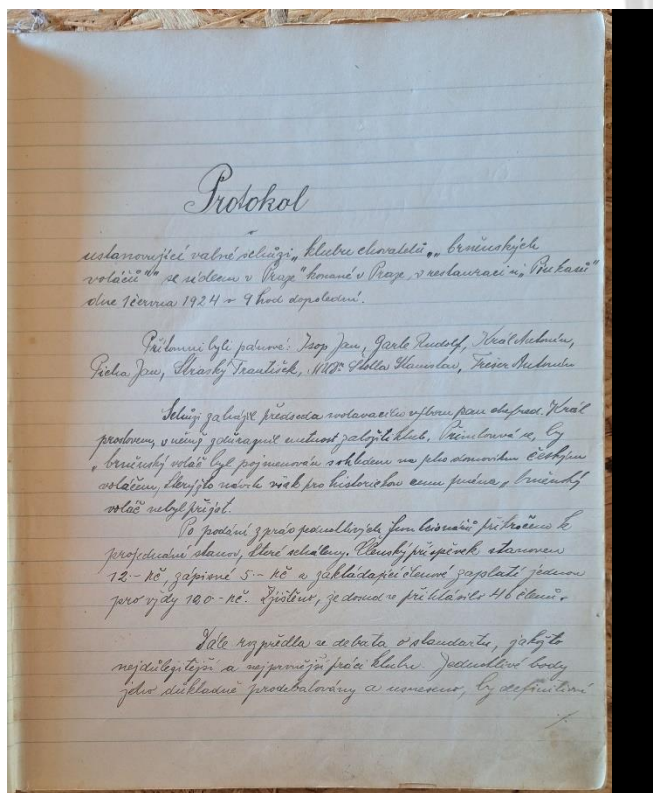 Protokol
ustanovující valné schůzi „klubu chovatelů „„brněnských
voláčů"" se sídlem v Praze" konané v Praze, v restauraci u „Pinkasů"
dne 1 června 1924 v 9 hod dopolední.
Přítomni byli pánové: Isop Jan, Garle Rudolf, Král Antonín,
Picha Jan, Straský František, MUDr Stolla Stanislav, Treser Antonín
Schůzi zahájil předseda svolavacího výboru pan Král
proslovem, v němž zdůraznil nutnost založiti klub. Přimlouvá se, by
„brněnský voláč byl pojmenován s ohledem na jeho domovinu českým
voláčem, kterýžto návrh však pro historickou cenu jména „brněnský
voláč nebyl přijat.
Po podání zpráv jednotlivých funkcionářů přikročeno k
projednání stanov, které schváleny. Členský příspěvek stanoven
12·- Kč, zápisné 5·- Kč a zakládající členové zaplatí jednou
pro vždy 120·- Kč. Zjištěno, že dosud se přihlásilo 46 členů.
Dále rozpředla se debata o standartu, jakožto
nejdůlegitější a nejprvnější práci klubu. Jednotlivé body
jeho důkladně prodebatovány a usneseno, by definitivní
./.